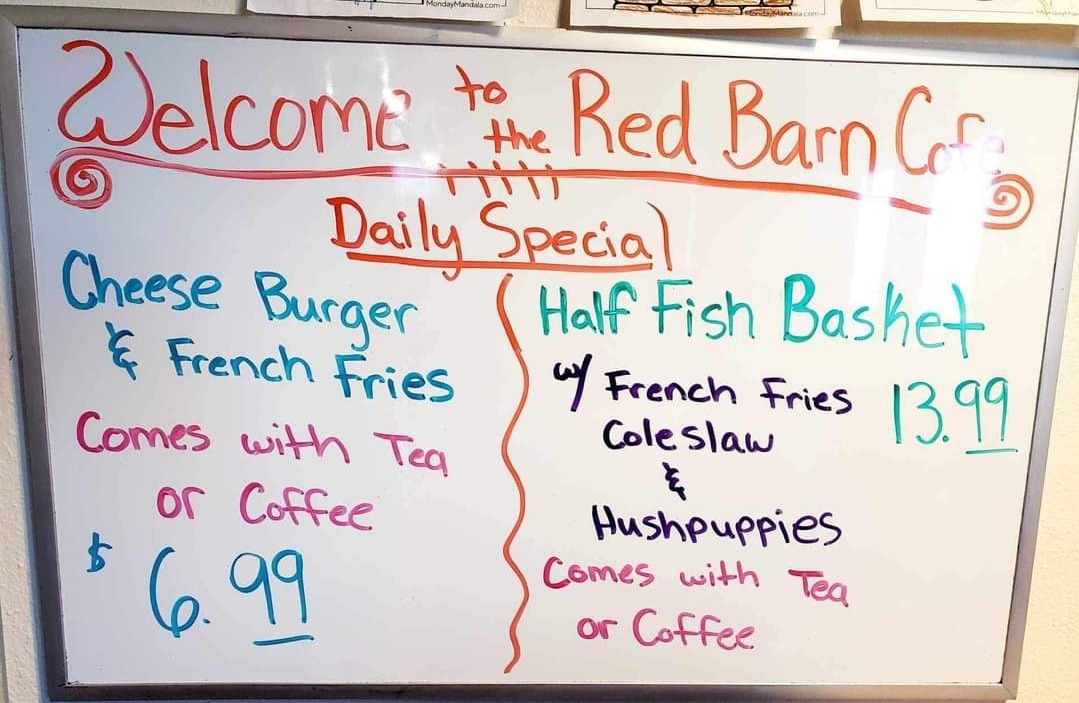 MondayMandala.com
MondayMandala.com
Welcome to the Red Barn Cafe
Daily Special
Cheese Burger
& French Fries
Comes with Tea
or Coffee
$ 6.99
Half Fish Basket
w/ French Fries 13.99
Coleslaw
&
Hushpuppies
Comes with Tea
or Coffee